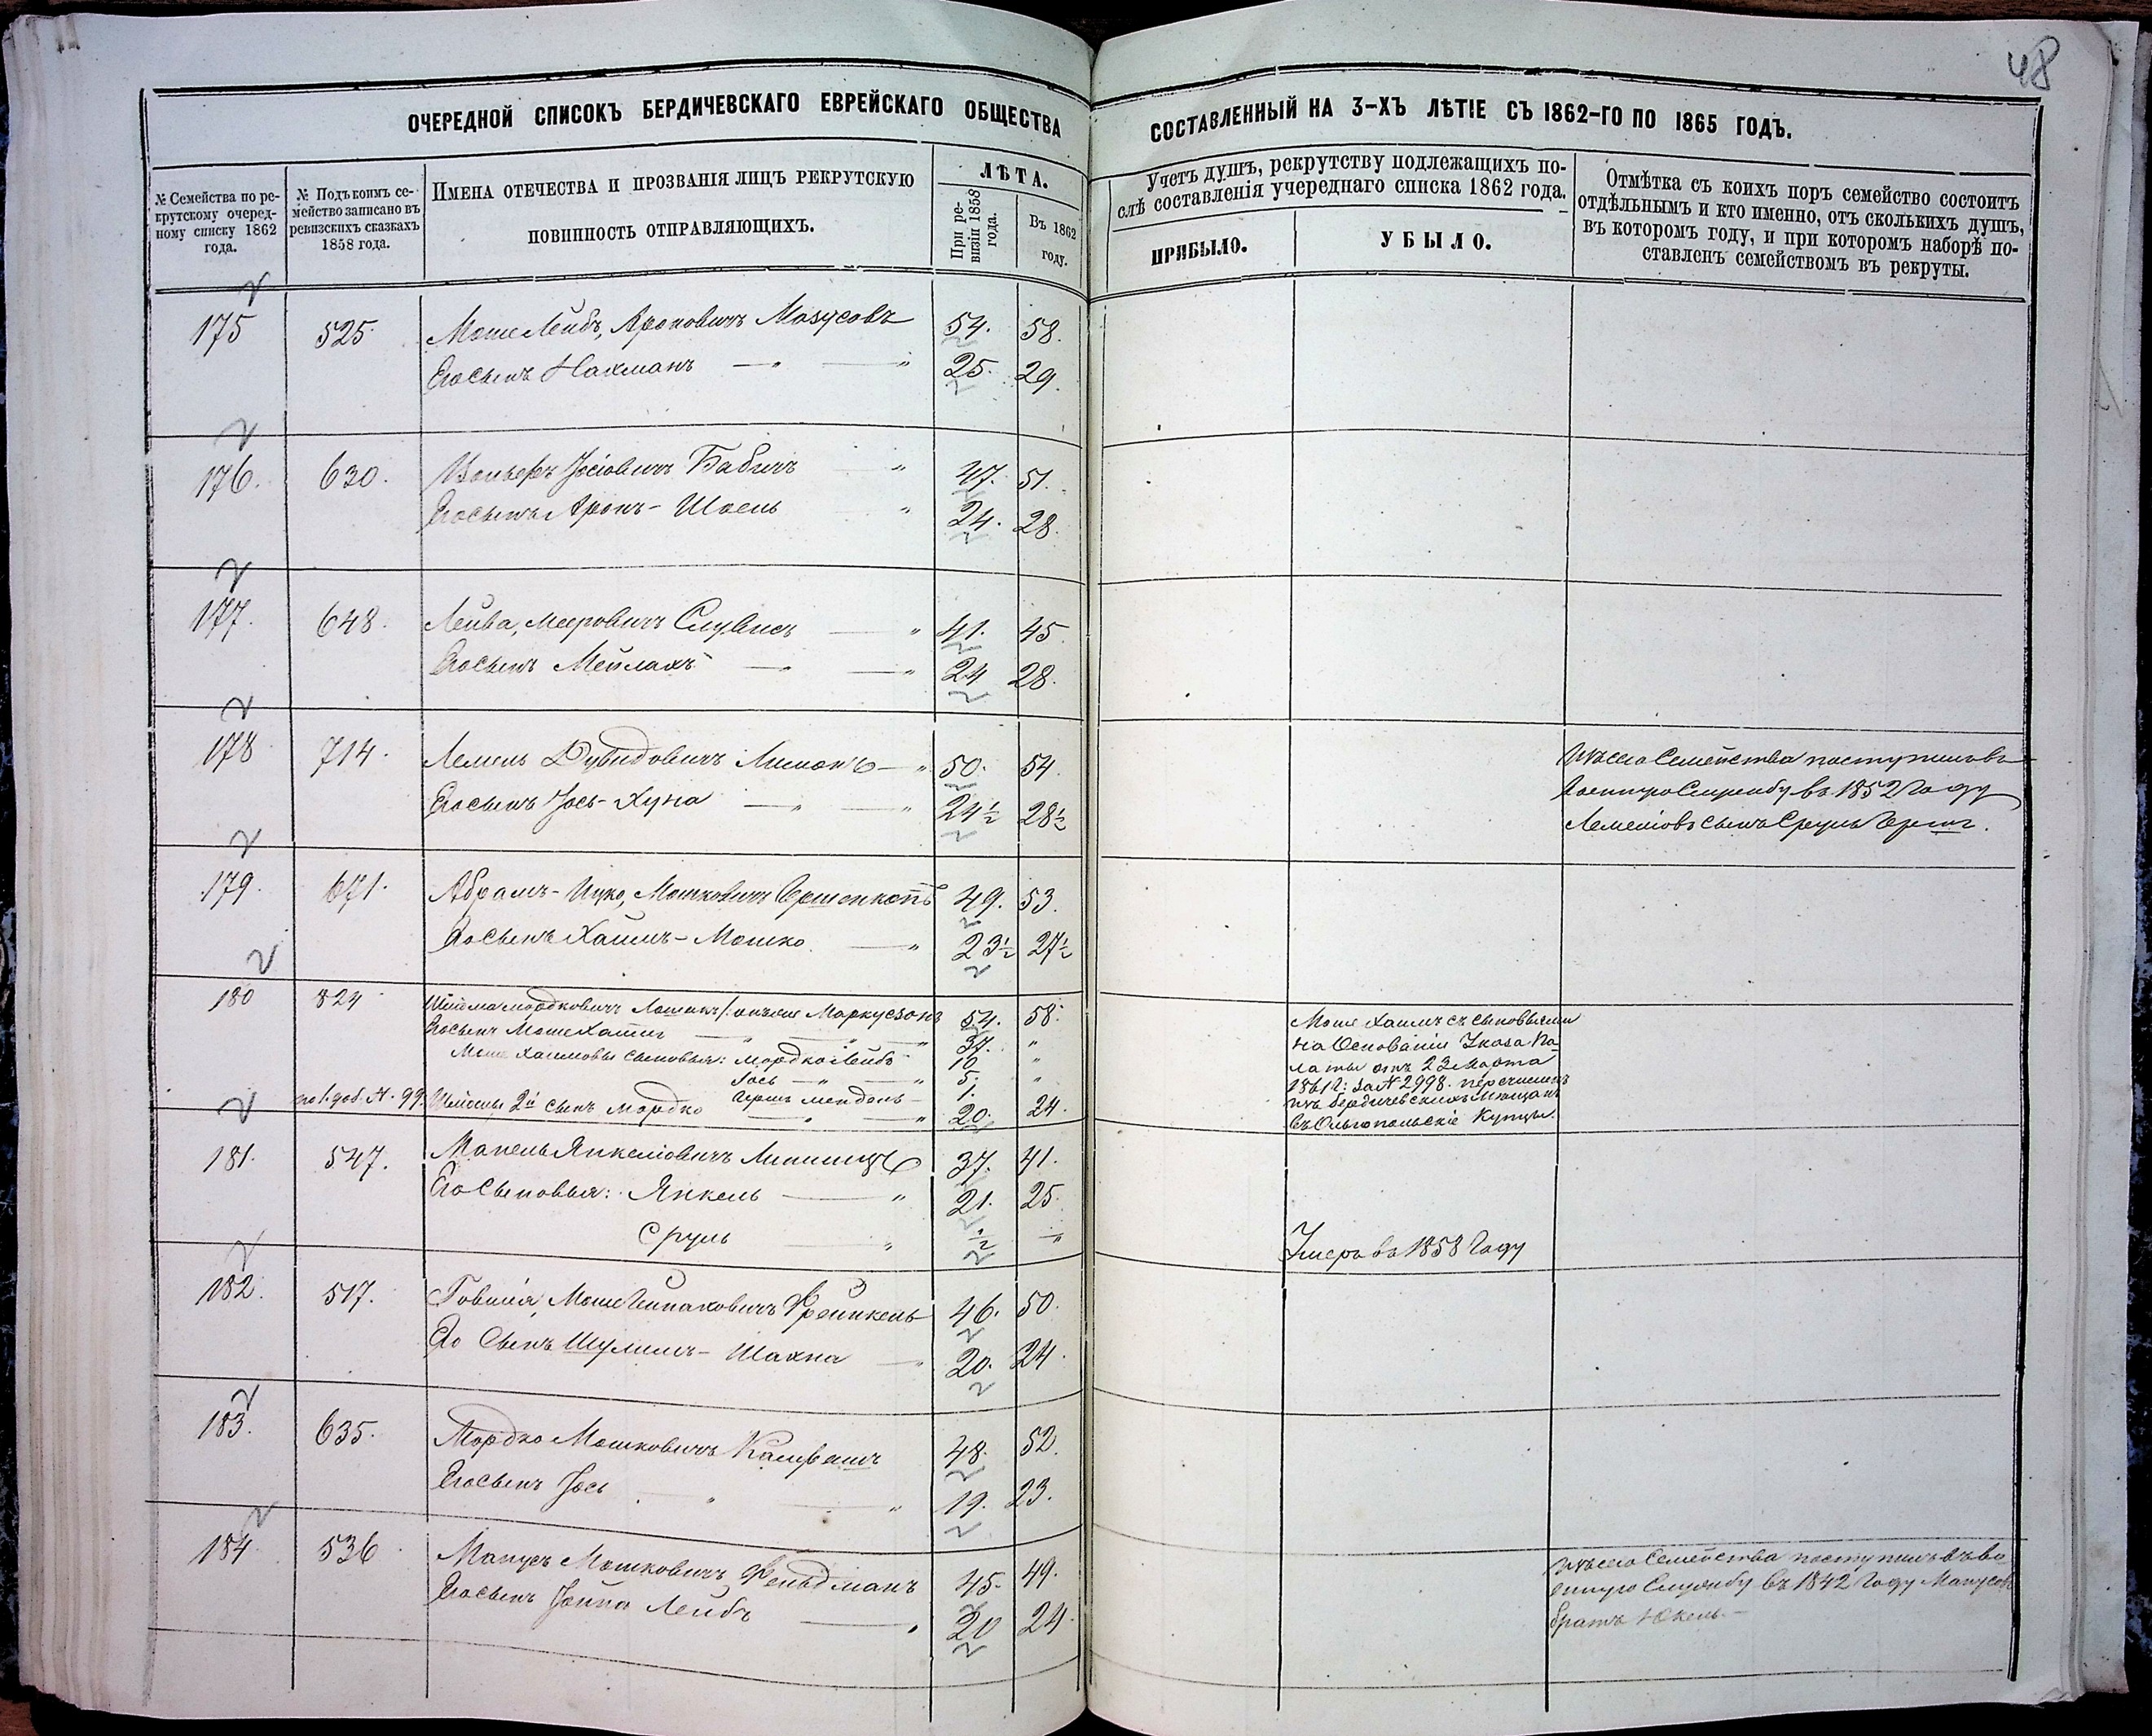 48
ОЧЕРЕДНОЙ СПИСОКЪ БЕРДИЧЕВСКАГО ЕВРЕЙСКАГО ОБЩЕСТВА
СОСТАВЛЕННЫЙ НА 3-ХЪ ЛѢТІЕ СЪ 1862-ГО ПО 1865 ГОДЪ.
№ Семейства по рекрутскому очередному списку 1862 года.
№ Подъ коимъ семейство записано въ ревизскихъ сказкахъ 1858 года.
ИМЕНА ОТЕЧЕСТВА И ПРОЗВАНІЯ ЛИЦЪ РЕКРУТСКУЮ
ПОВИННОСТЬ ОТПРАВЛЯЮЩИХЪ.
ЛѢТА.
При ревизіи 1858 года.
Въ 1862 году.
Учетъ душъ, рекрутству подлежащихъ послѣ составленія учереднаго списка 1862 года.
ПРИБЫЛО.
УБЫЛО.
Отмѣтка съ коихъ поръ семейство состоитъ
отдѣльнымъ и кто именно, отъ сколькихъ душъ,
въ которомъ году, и при которомъ наборѣ поставленъ семействомъ въ рекруты.
175 525. Моше Лейбъ, Ароновичъ Мозусовъ 54. 58.
Его сынъ Нахманъ 25. 29.
176. 630. Іосіовичъ Бабичъ 47. 51.
Его сынъ Аронъ-Шаель 24. 28
177. 648. Лейва, Мееровичъ 41. 45
Его сынъ Мейлахъ 24 28.
178 714. Лемель Дувидовичъ Лимонъ 50. 54.
Его сынъ Іось-Хуна 24½ 28½
Изъ сего Семейства поступилъ въ
военную Службу въ 1852 Году
Лемеліовъ сынъ Сруль Гершъ.
179. 671. Абрамъ-Ицко, Мошковичъ 49. 53.
Его сынъ Хаимъ-Мошко 23½ 27½
180 824 Мордковичъ онъ же Маркузонъ 54. 58.
Его сынъ Моше Хаимъ 37. "
Моше Хаимовы сыновья: Мордко Лейбъ 10 "
Іось 5. "
Гершъ Мендель 1.
по 1. доб. № 99. 2й сынъ Мордко 20. 24.
Моше Хаимъ съ сыновьями
на Основаніи Указа Па
латы отъ 23 Марта
1861 г: за № 2998. перечисленъ
изъ Бердичевскихъ Мѣщанъ
въ Ольгопольскіе Купцы.
181. 547. Манель Янкеліовичъ 37. 41.
Его Сыновья: Янкель 21. 25.
Сруль ½ "
Умеръ въ 1858 Году
182. 517. Товшія, Моше Френкель 46. 50.
Его Сынъ Шулимъ-Шахна 20. 24.
183. 635. Мордко Мошковичъ 48. 52.
Его сынъ Іось 19. 23.
184 536 Манусъ Мошковичъ Фельдманъ 45. 49.
Его сынъ Лейбъ 20 24.
Изъ сего Семейства поступилъ въ во
енную Службу въ 1842 Году Манусовъ
братъ Юкель.